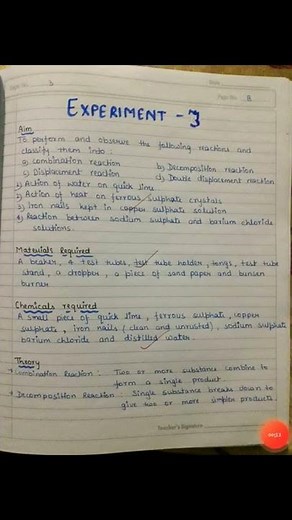 Date
Page No. 8
EXPERIMENT - 3
Aim
To perform and observe the following reactions and
classify them into :
a) Combination reaction b) Decomposition reaction
c) Displacement reaction d) Double displacement reaction
1) Action of water on quick lime
2) Action of heat on ferrous sulphate crystals
3) Iron nails kept in copper sulphate solution
4) Reaction between sodium sulphate and barium chloride
solutions.
Materials Required
A beaker, 4 test tubes, test tube holder, tongs, test tube
stand, a dropper, a piece of sand paper and bunsen
burner.
Chemicals required
A small piece of quick lime, ferrous sulphate, copper
sulphate, iron nails (clean and unrusted), sodium sulphate
barium chloride and distilled water.
Theory
Combination Reaction : Two or more substance combine to
form a single product
Decomposition Reaction : Single substance breaks down to
give two or more simpler products
Teacher's Signature